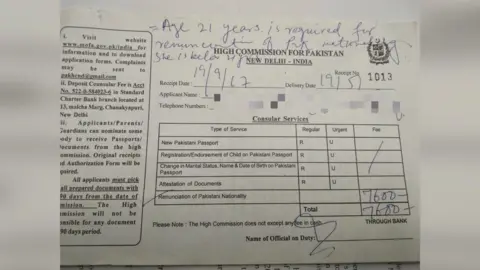 = Age 21 years is required for
renunciation of Pak nationality
She is below 21
HIGH COMMISSION FOR PAKISTAN
NEW DELHI - INDIA
Receipt No. 1013
Receipt Date: 19/9/67
Delivery Date
Applicant Name :
Telephone Numbers :
i. Visit website
www.mofa.gov.pk/india for
information and to download
application forms. Complaints
may be sent to
pakhcnd@gmail.com
ii. Deposit Consular Fee in Acct
No. 522-0-504023-6 in Standard
Charter Bank branch located at
13, malcha Marg, Chanakyapuri,
New Delhi
ii. Applicants/Parents/
Guardians can nominate some
body to receive Passports/
documents from the high
commission. Original receipts
and Authorization Form will be
required.
All applicants must pick
all prepared documents with
90 days from the date of
mission. The High
mmission will not be
ponsible for any document
90 days period.
Consular Services
Type of Service Regular Urgent Fee
New Pakistani Passport R U
Registration/Endorsement of Child on Pakistani Passport R U
Change in Marital Status, Name & Date of Birth on Pakistani
Passport R U
Attestation of Documents R U
Renunciation of Pakistani Nationality 7600-
Total 7600-
Please Note : The High Commission does not except any fee in cash THROUGH BANK
Name of Official on Duty: